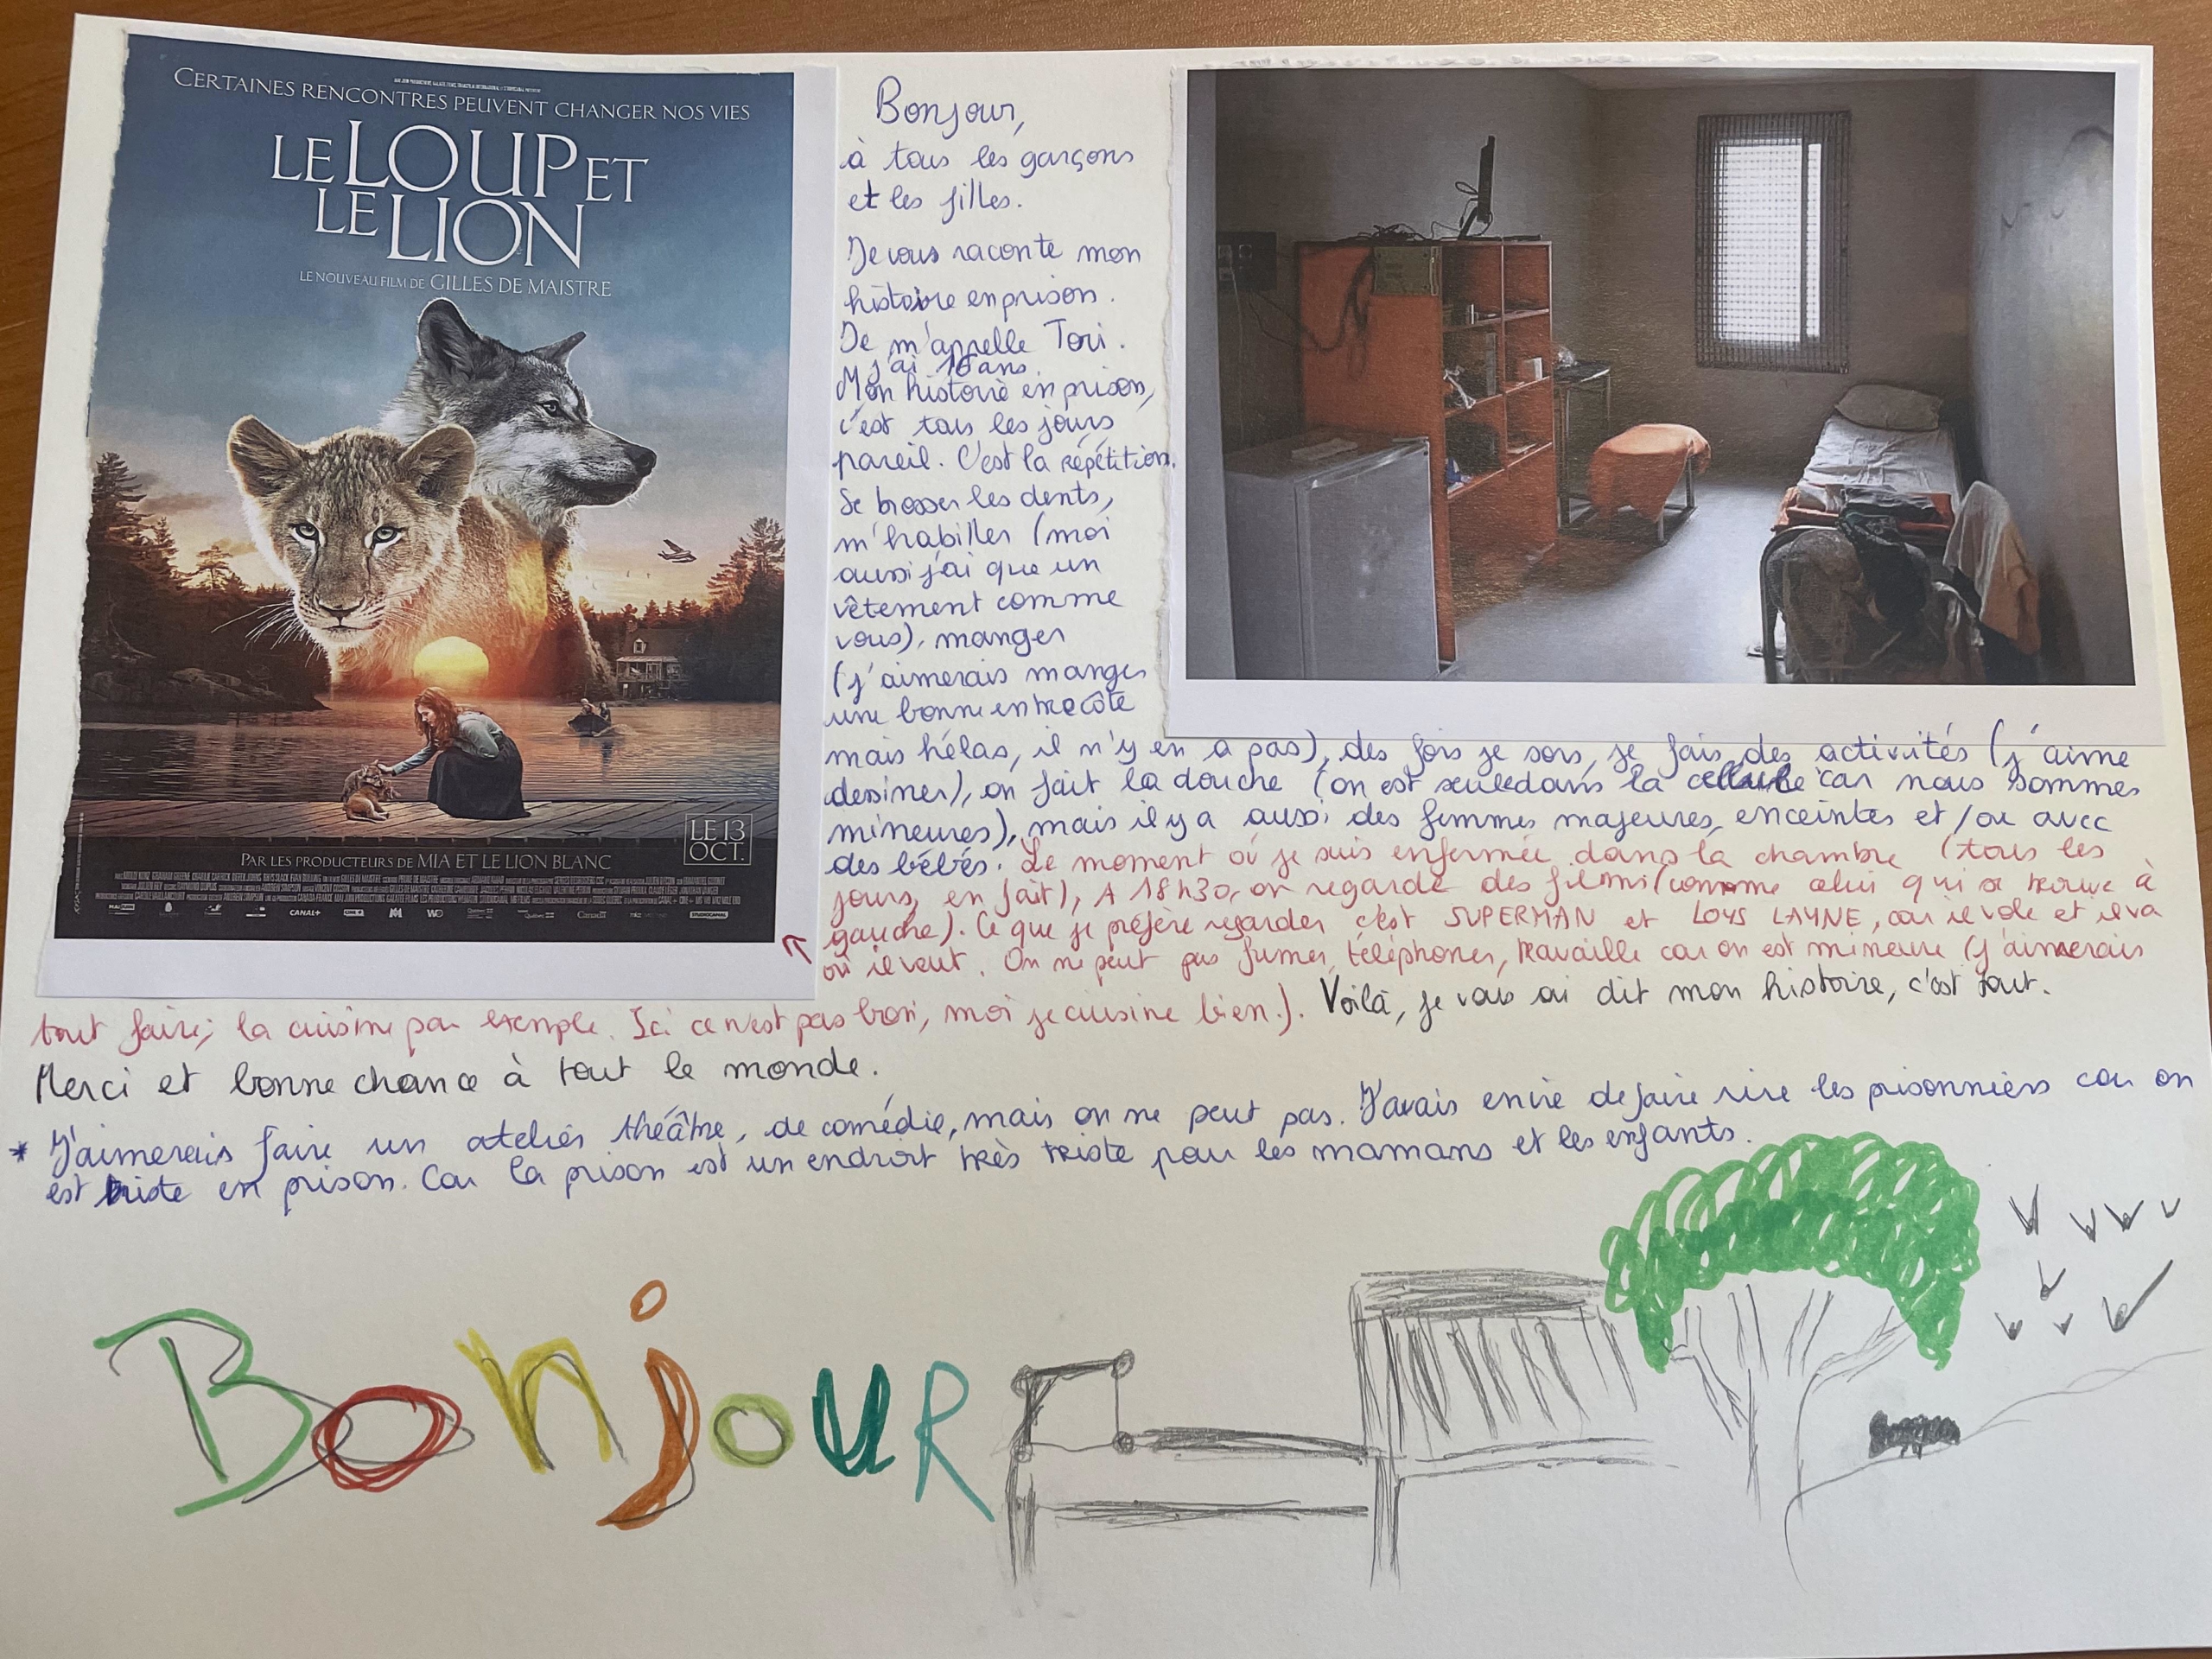 CERTAINES RENCONTRES PEUVENT CHANGER NOS VIES
LE LOUP ET
LE LION
LE NOUVEAU FILM DE GILLES DE MAISTRE
LE 13
OCT.
PAR LES PRODUCTEURS DE MIA ET LE LION BLANC
CANAL+
STUDIOCANAL
Bonjour,
à tous les garçons
et les filles.
Je vous raconte mon
histoire en prison.
Je m'appelle Tori.
j'ai 16 ans.
Mon histoire en prison,
c'est tous les jours
pareil. C'est la répétition.
Se brosser les dents,
m'habiller (moi
aussi j'ai que un
vêtement comme
vous), manger
(j'aimerais manger
une bonne entrecôte
mais hélas, il n'y en a pas), des fois je sors, je fais des activités (j'aime
dessiner), on fait la douche (on est seule dans la cellule car nous sommes
mineures), mais il y a aussi des femmes majeures, enceintes et/ou avec
des bébés. Le moment où je suis enfermée dans la chambre (tous les
jours, en fait), A 18h30, on regarde des films (comme celui qui se trouve à
gauche). Ce que je préfère regarder c'est SUPERMAN et LOYS LAYNE, car il vole et il va
où il veut. On ne peut pas fumer, téléphoner, travaille car on est mineure (j'aimerais
tout faire, la cuisine par exemple. Ici ce n'est pas bon, moi je cuisine bien.). Voilà, je vous ai dit mon histoire, c'est tout.
Merci et bonne chance à tout le monde.
* J'aimerais faire un ateliér théâtre, de comédie, mais on ne peut pas. J'avais envie de faire rire les prisonniers car on
est triste en prison. Car la prison est un endroit très triste pour les mamans et les enfants.
BonjouR